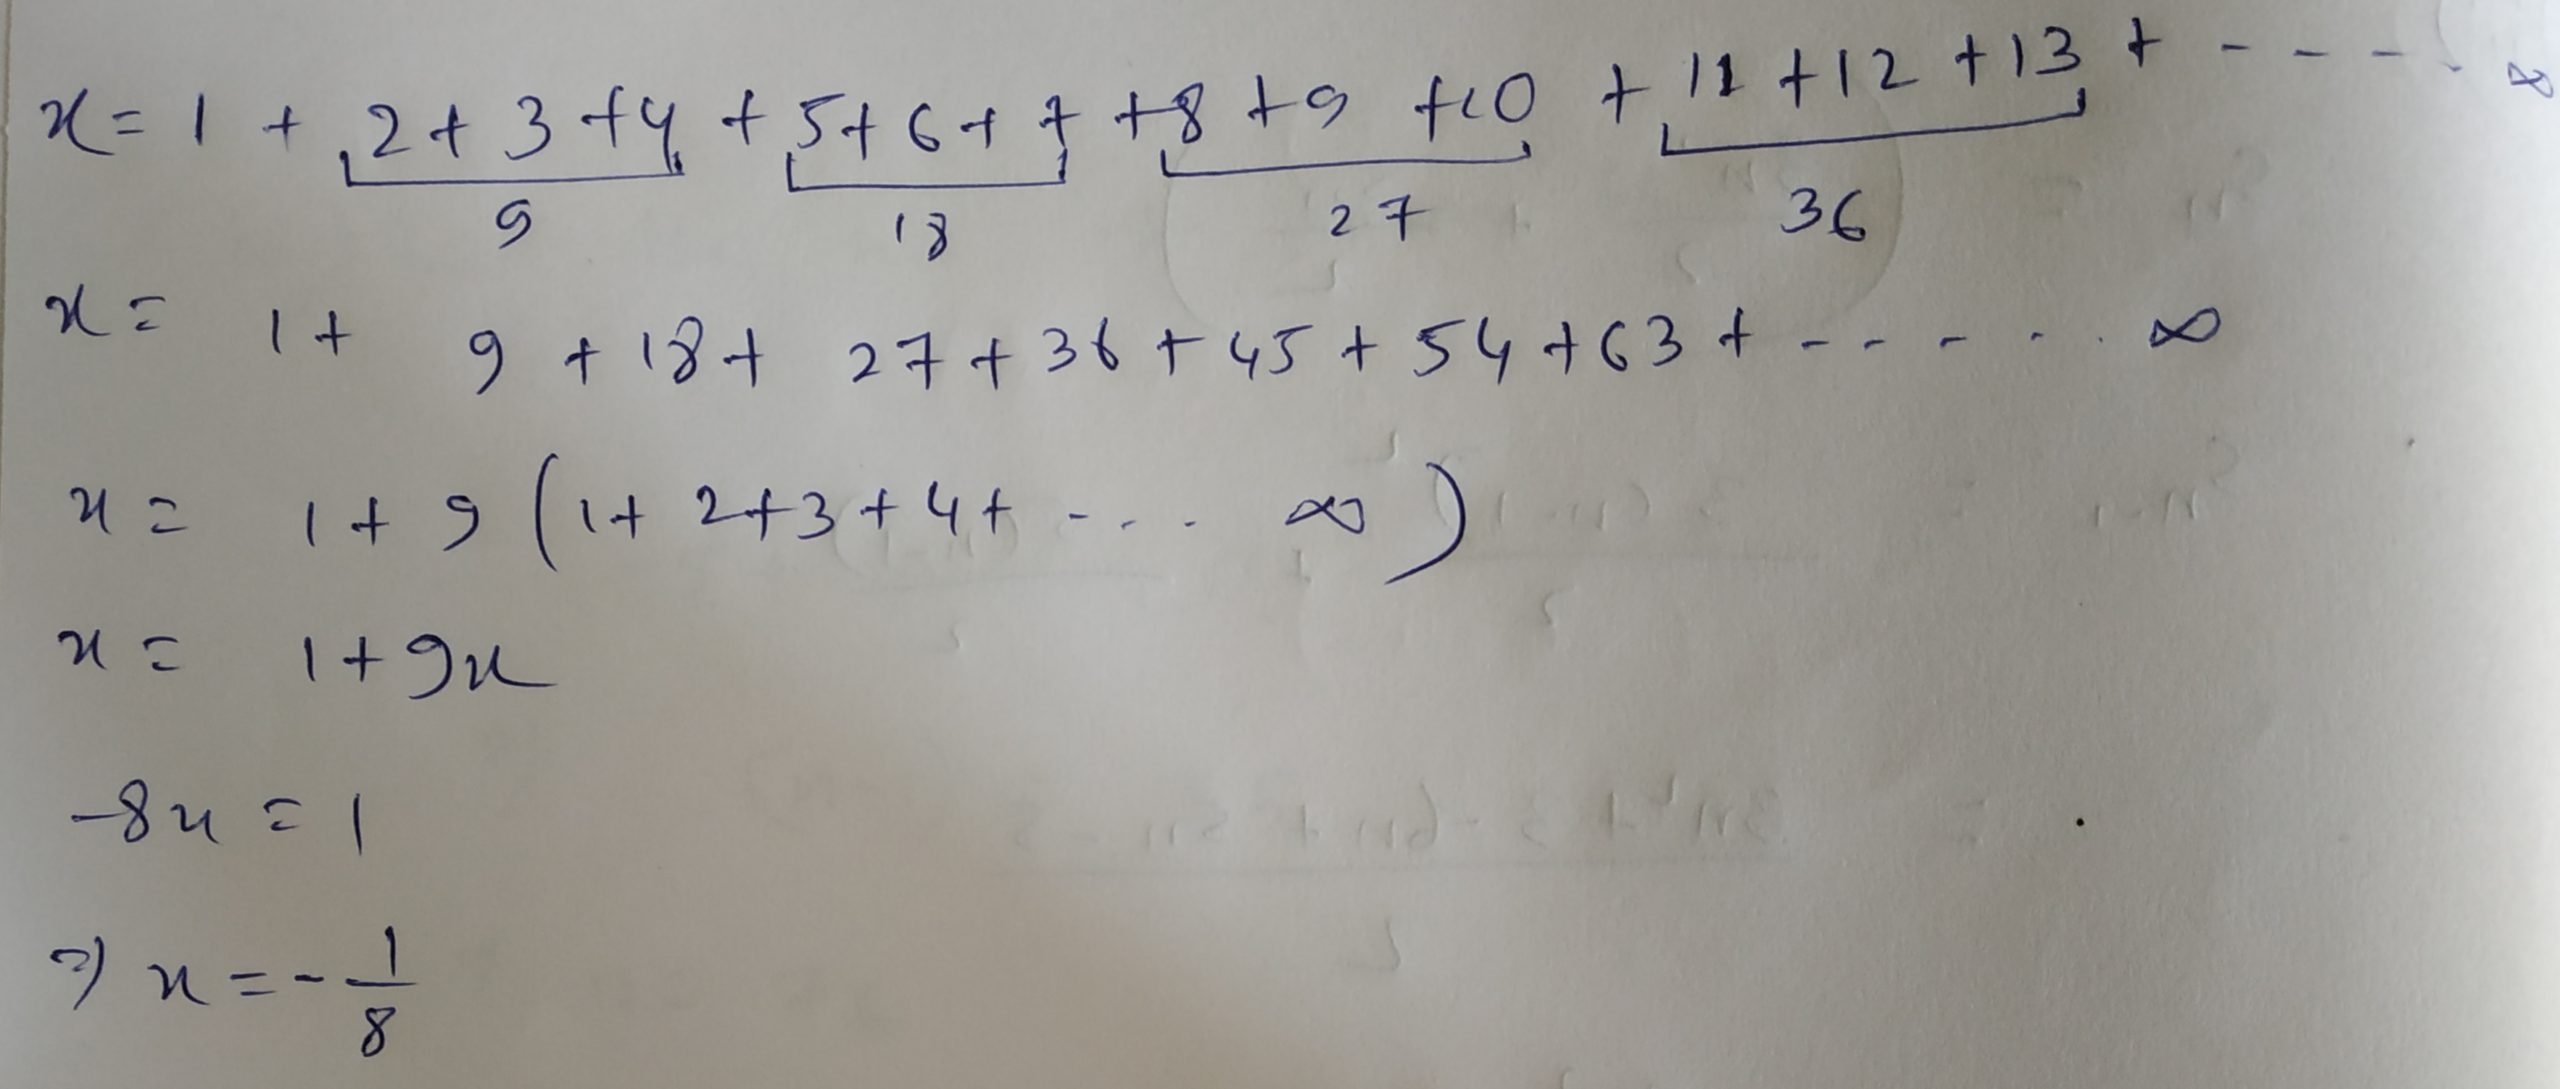 x = 1 + 2 + 3 + 4 + 5 + 6 + 7 + 8 + 9 + 10 + 11 + 12 + 13 + - - - - ∞
9 18 27 36
x = 1 + 9 + 18 + 27 + 36 + 45 + 54 + 63 + - - - . . . ∞
x = 1 + 9 (1 + 2 + 3 + 4 + - - - ∞)
x = 1 + 9x
-8x = 1
⇒ x = -1/8